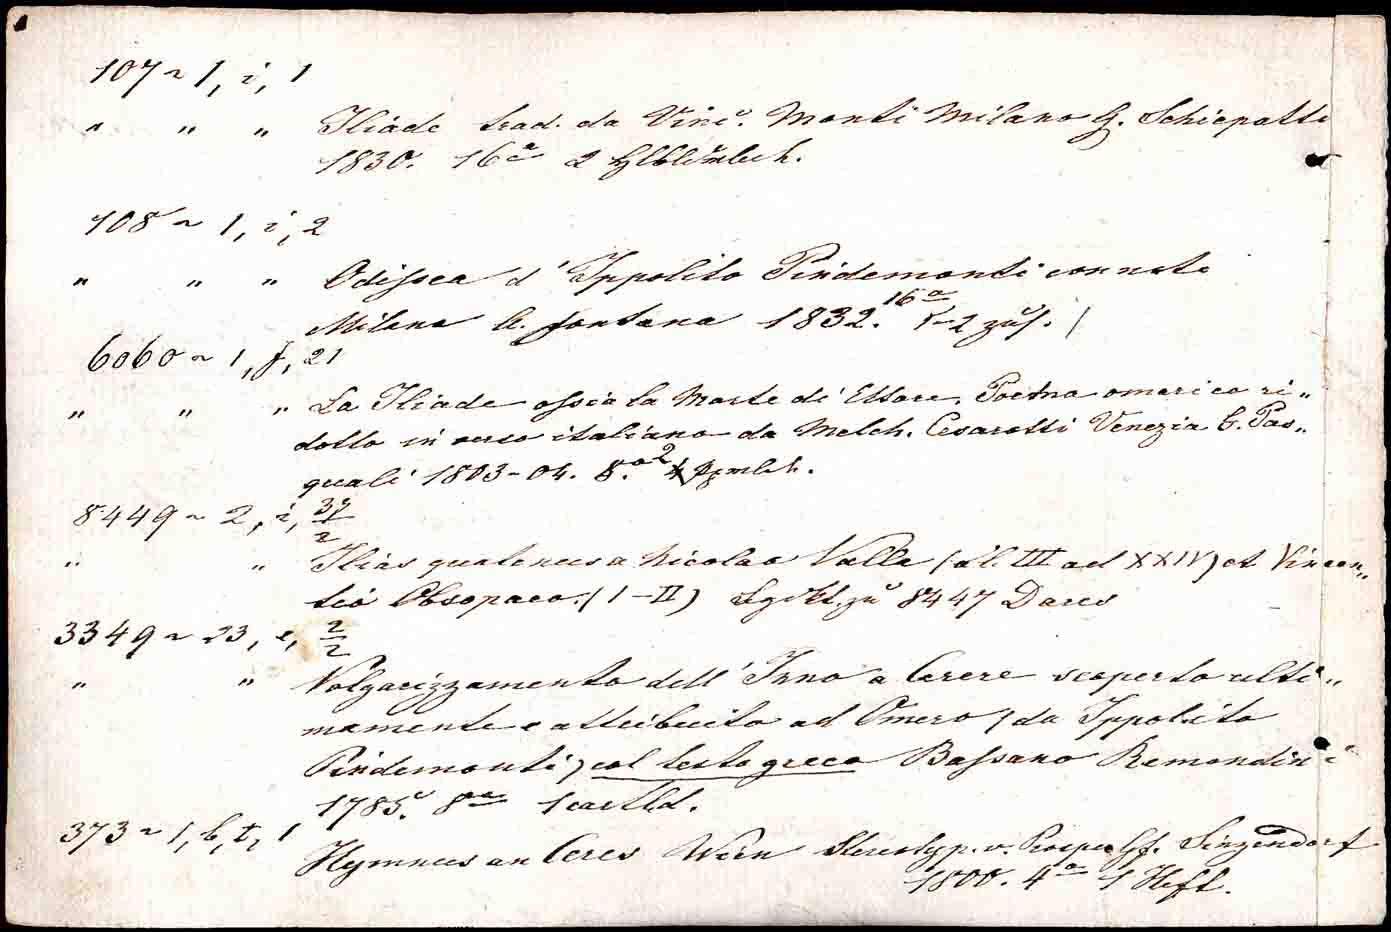 107 ~ 1, i, 1
" " " Iliade trad. da Vinc. Monti Milano G. Schiepatti
1830. 16a 2
108 ~ 1, i, 2
" " " Odissea d' Ippolito Pindemonti con note
Milano A. Fontana 1832. 16a 2 /
6060 ~ 1, f, 21
" " " La Iliade ossia la Morte di Ettore, Poema omerico ri„
dotto in verso italiano da Melch. Cesarotti Venezia C. Pas„
quali 1803-04. 8.a 2
8449 ~ 2, i, 37/2
" " Ilias quatenus a Nicolao Valla (a l. III ad XXIV) et Vincen„
tio Obsopaeo. (I-II) zu 8447 Dares
3349 ~ 23, e, 2/2
" " Volgarizzamento dell' Inno a Cerere scoperto ulti„
mamente e attribuito ad Omero (da Ippolito
Pindemonti) col testo greco Bassano Remondini
1785. 8a 1
373 ~ 1, b, t, 1
Hymnus an Ceres Wien Stereotyp. v. Prosper Gf. Sinzendorf
1800. 4a 1 Heft.